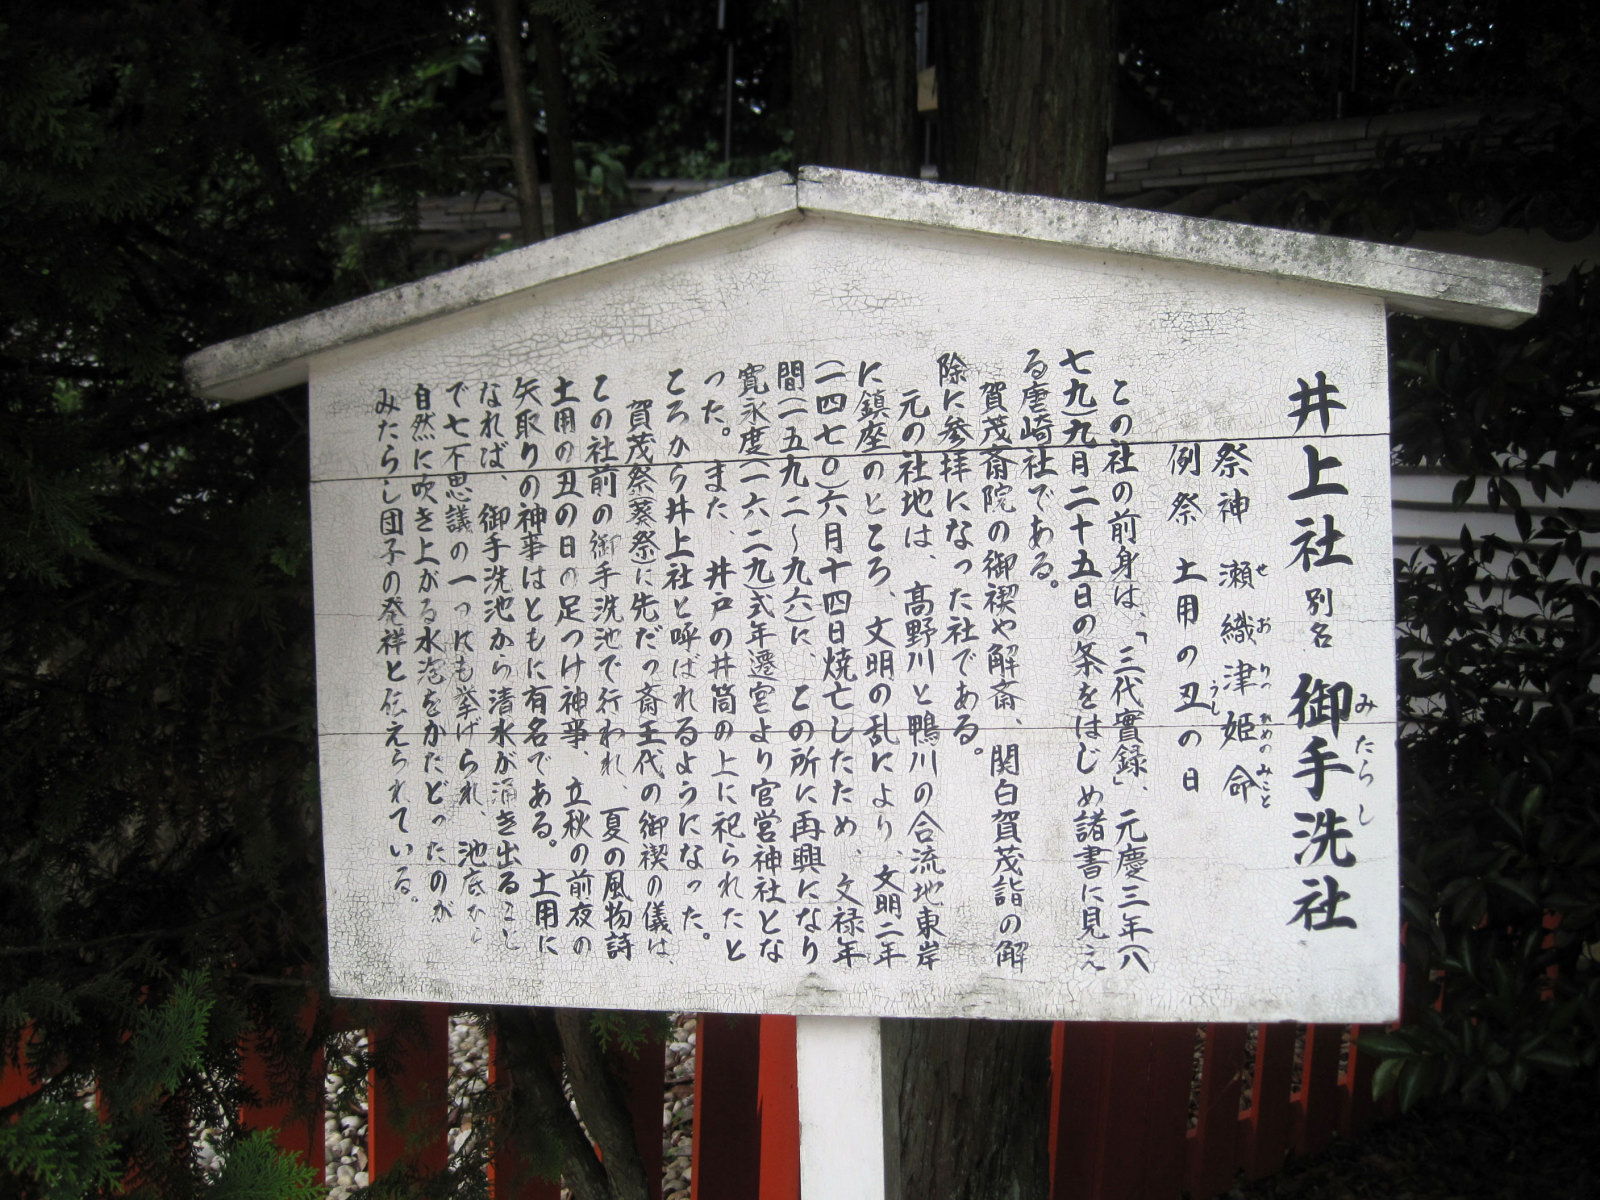 井上社 別名 御手洗社
みたらし
祭神 瀬織津姫命
せおりつひめのみこと
例祭 土用の丑の日
うし
この社の前身は、「三代實録」、元慶三年（八
七九）九月二十五日の条をはじめ諸書に見え
る唐崎社である。
賀茂斎院の御禊や解斎、関白賀茂詣の解
除に参拝になった社である。
元の社地は、高野川と鴨川の合流地東岸
に鎮座のところ、文明の乱により、文明二年
（一四七〇）六月十四日焼亡したため、文禄年
間（一五九二～九六）に、この所に再興になり
寛永度（一六二九）式年遷宮より官営神社とな
った。また、井戸の井筒の上に祀られたと
ころから井上社と呼ばれるようになった。
賀茂祭（葵祭）に先だつ斎王代の御禊の儀は、
この社前の御手洗池で行われ、夏の風物詩
土用の丑の日の足つけ神事、立秋の前夜の
矢取りの神事はともに有名である。土用に
なれば、御手洗池から清水が湧き出ること
で七不思議の一つにも挙げられ、池底から
自然に吹き上がる水泡をかたどったのが
みたらし団子の発祥と伝えられている。